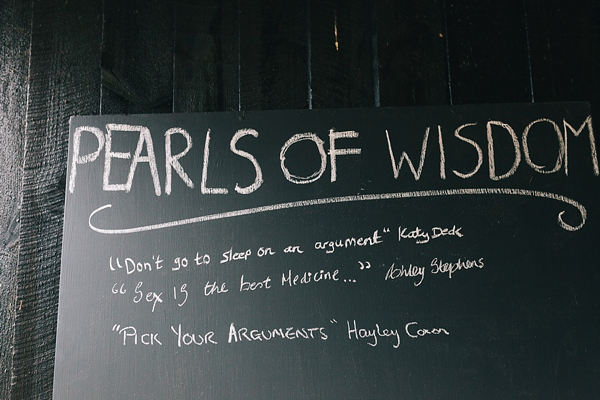 PEARLS OF WISDOM
"Don't go to sleep on an argument" Katy Deck
"Sex is the best Medicine..." Ashley Stephens
"PICK YOUR ARGUMENTS" Hayley